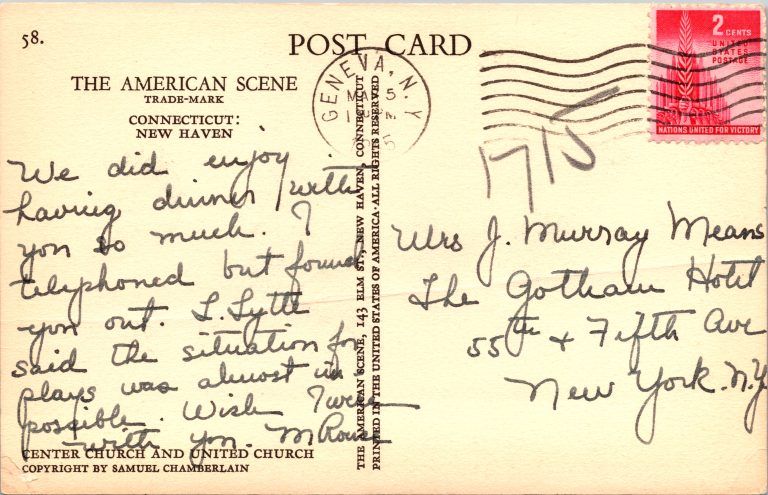 58.
POST CARD
THE AMERICAN SCENE
TRADE-MARK
CONNECTICUT:
NEW HAVEN
GENEVA, N.Y.
2 CENTS
UNITED
STATES
POSTAGE
NATIONS UNITED FOR VICTORY
1715
We did enjoy
having dinner with
you so much. I
telephoned but found
you out. L. Lytle
said the situation for
plays was almost im
possible. Wish I were
with you. M Rouse
THE AMERICAN SCENE, 143 ELM ST., NEW HAVEN, CONNECTICUT
PRINTED IN THE UNITED STATES OF AMERICA·ALL RIGHTS RESERVED
Mrs J. Murray Means
The Gotham Hotel
55th + Fifth Ave
New York. N.Y.
CENTER CHURCH AND UNITED CHURCH
COPYRIGHT BY SAMUEL CHAMBERLAIN